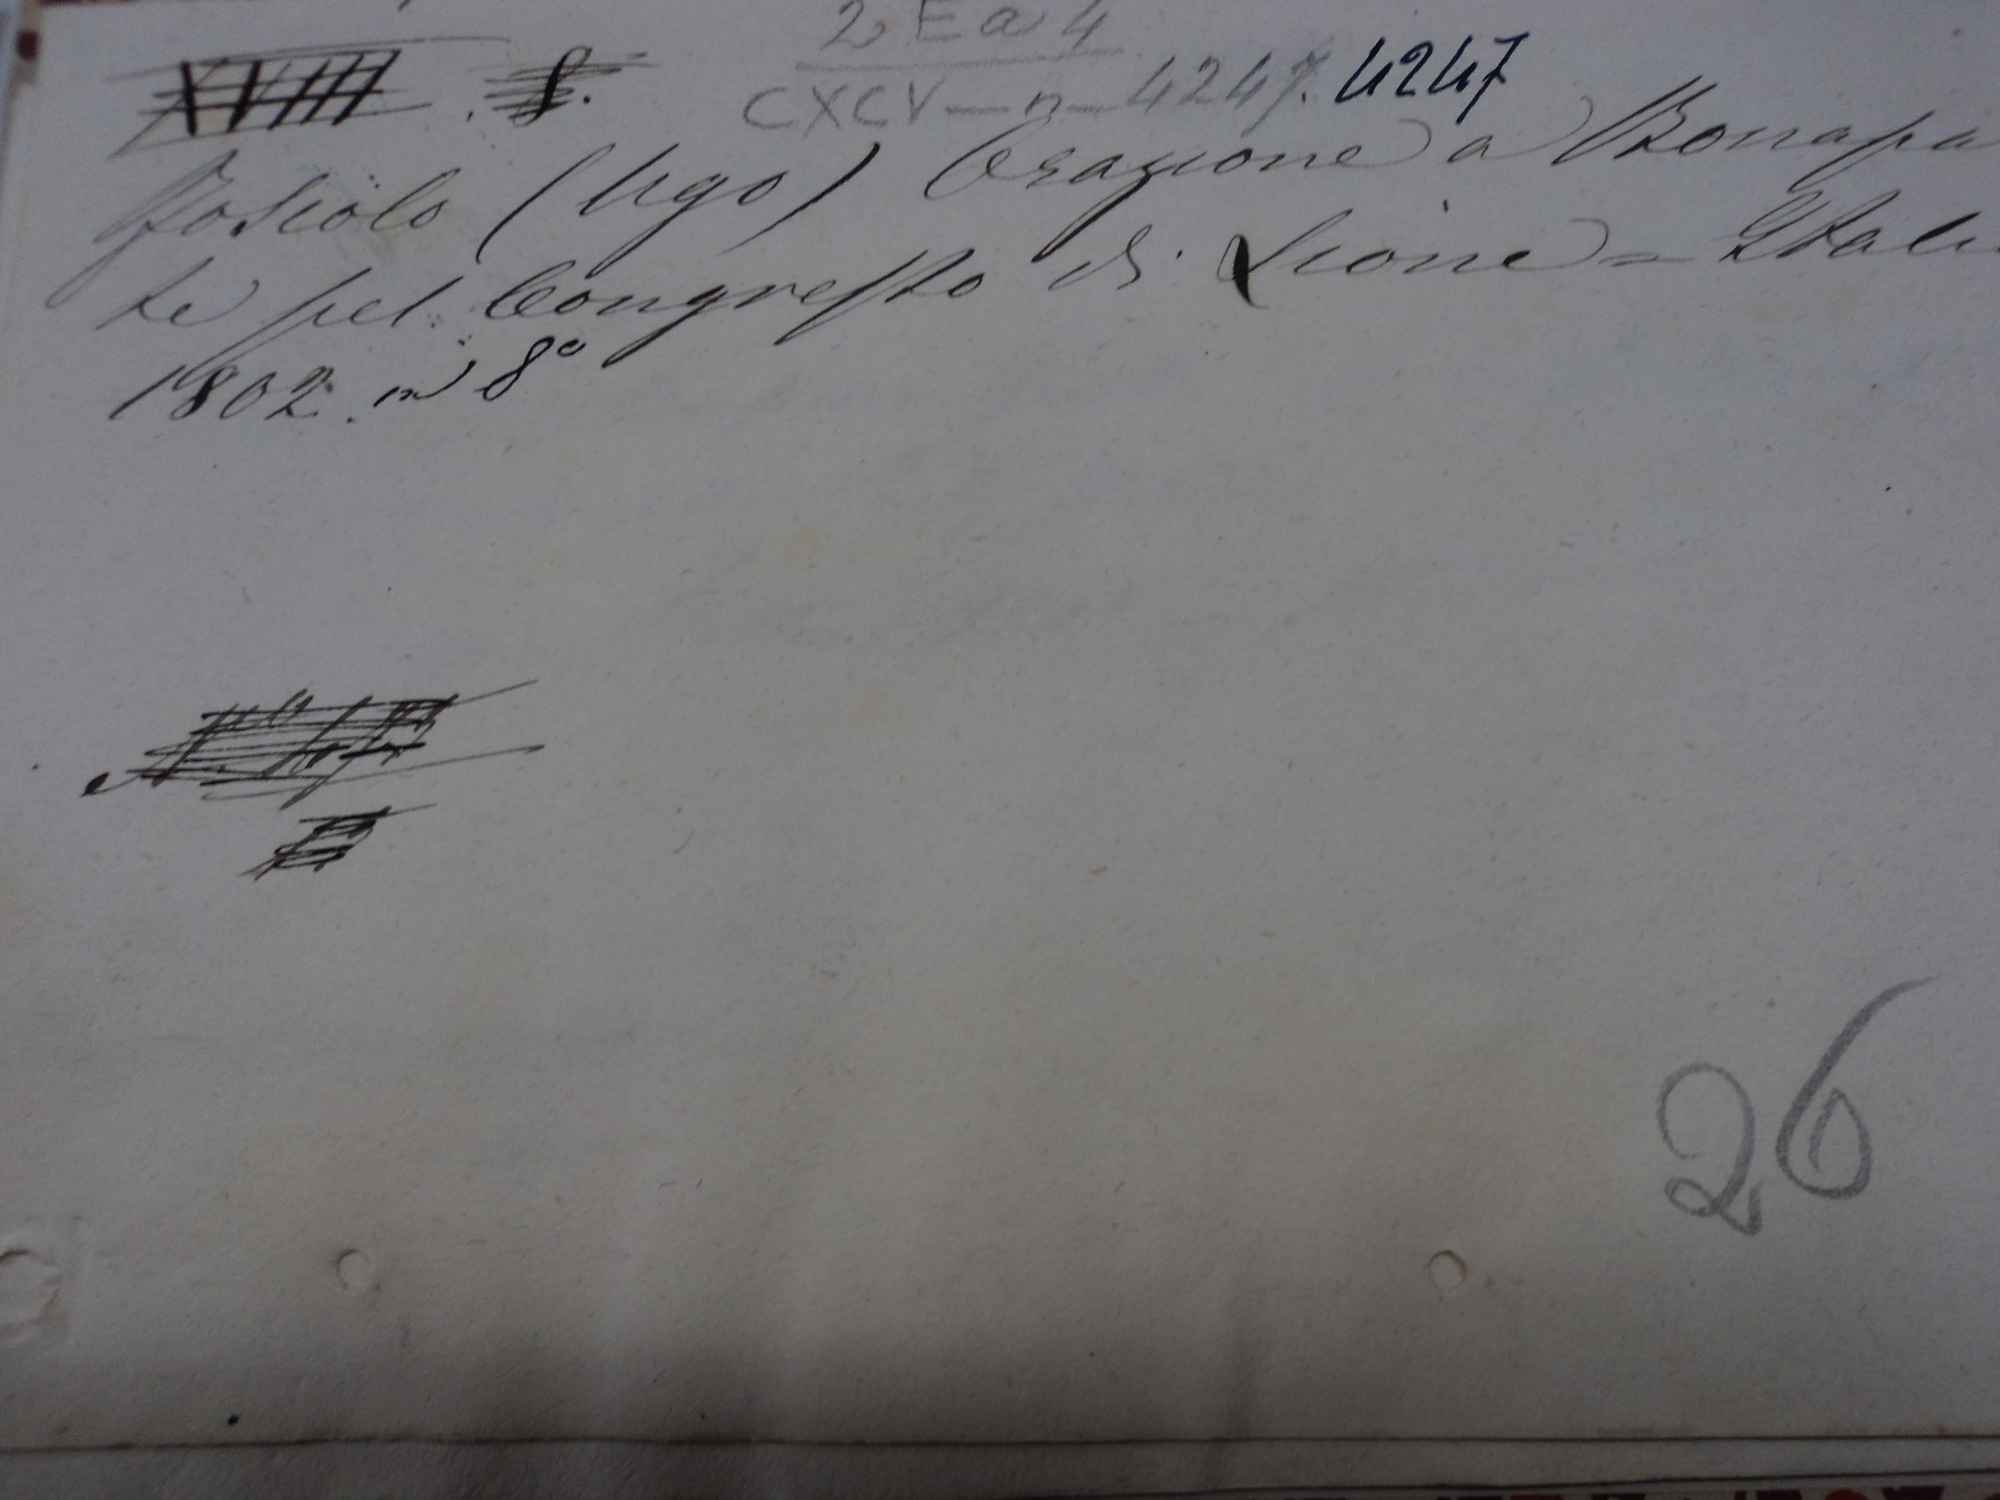 2 E a 4
XVIIII . 8.
CXCV — n — 4247. 4247
Foscolo (Ugo) Orazione a Bonapa
te pel Congresso di Lione = Itali
1802. in 8°
26